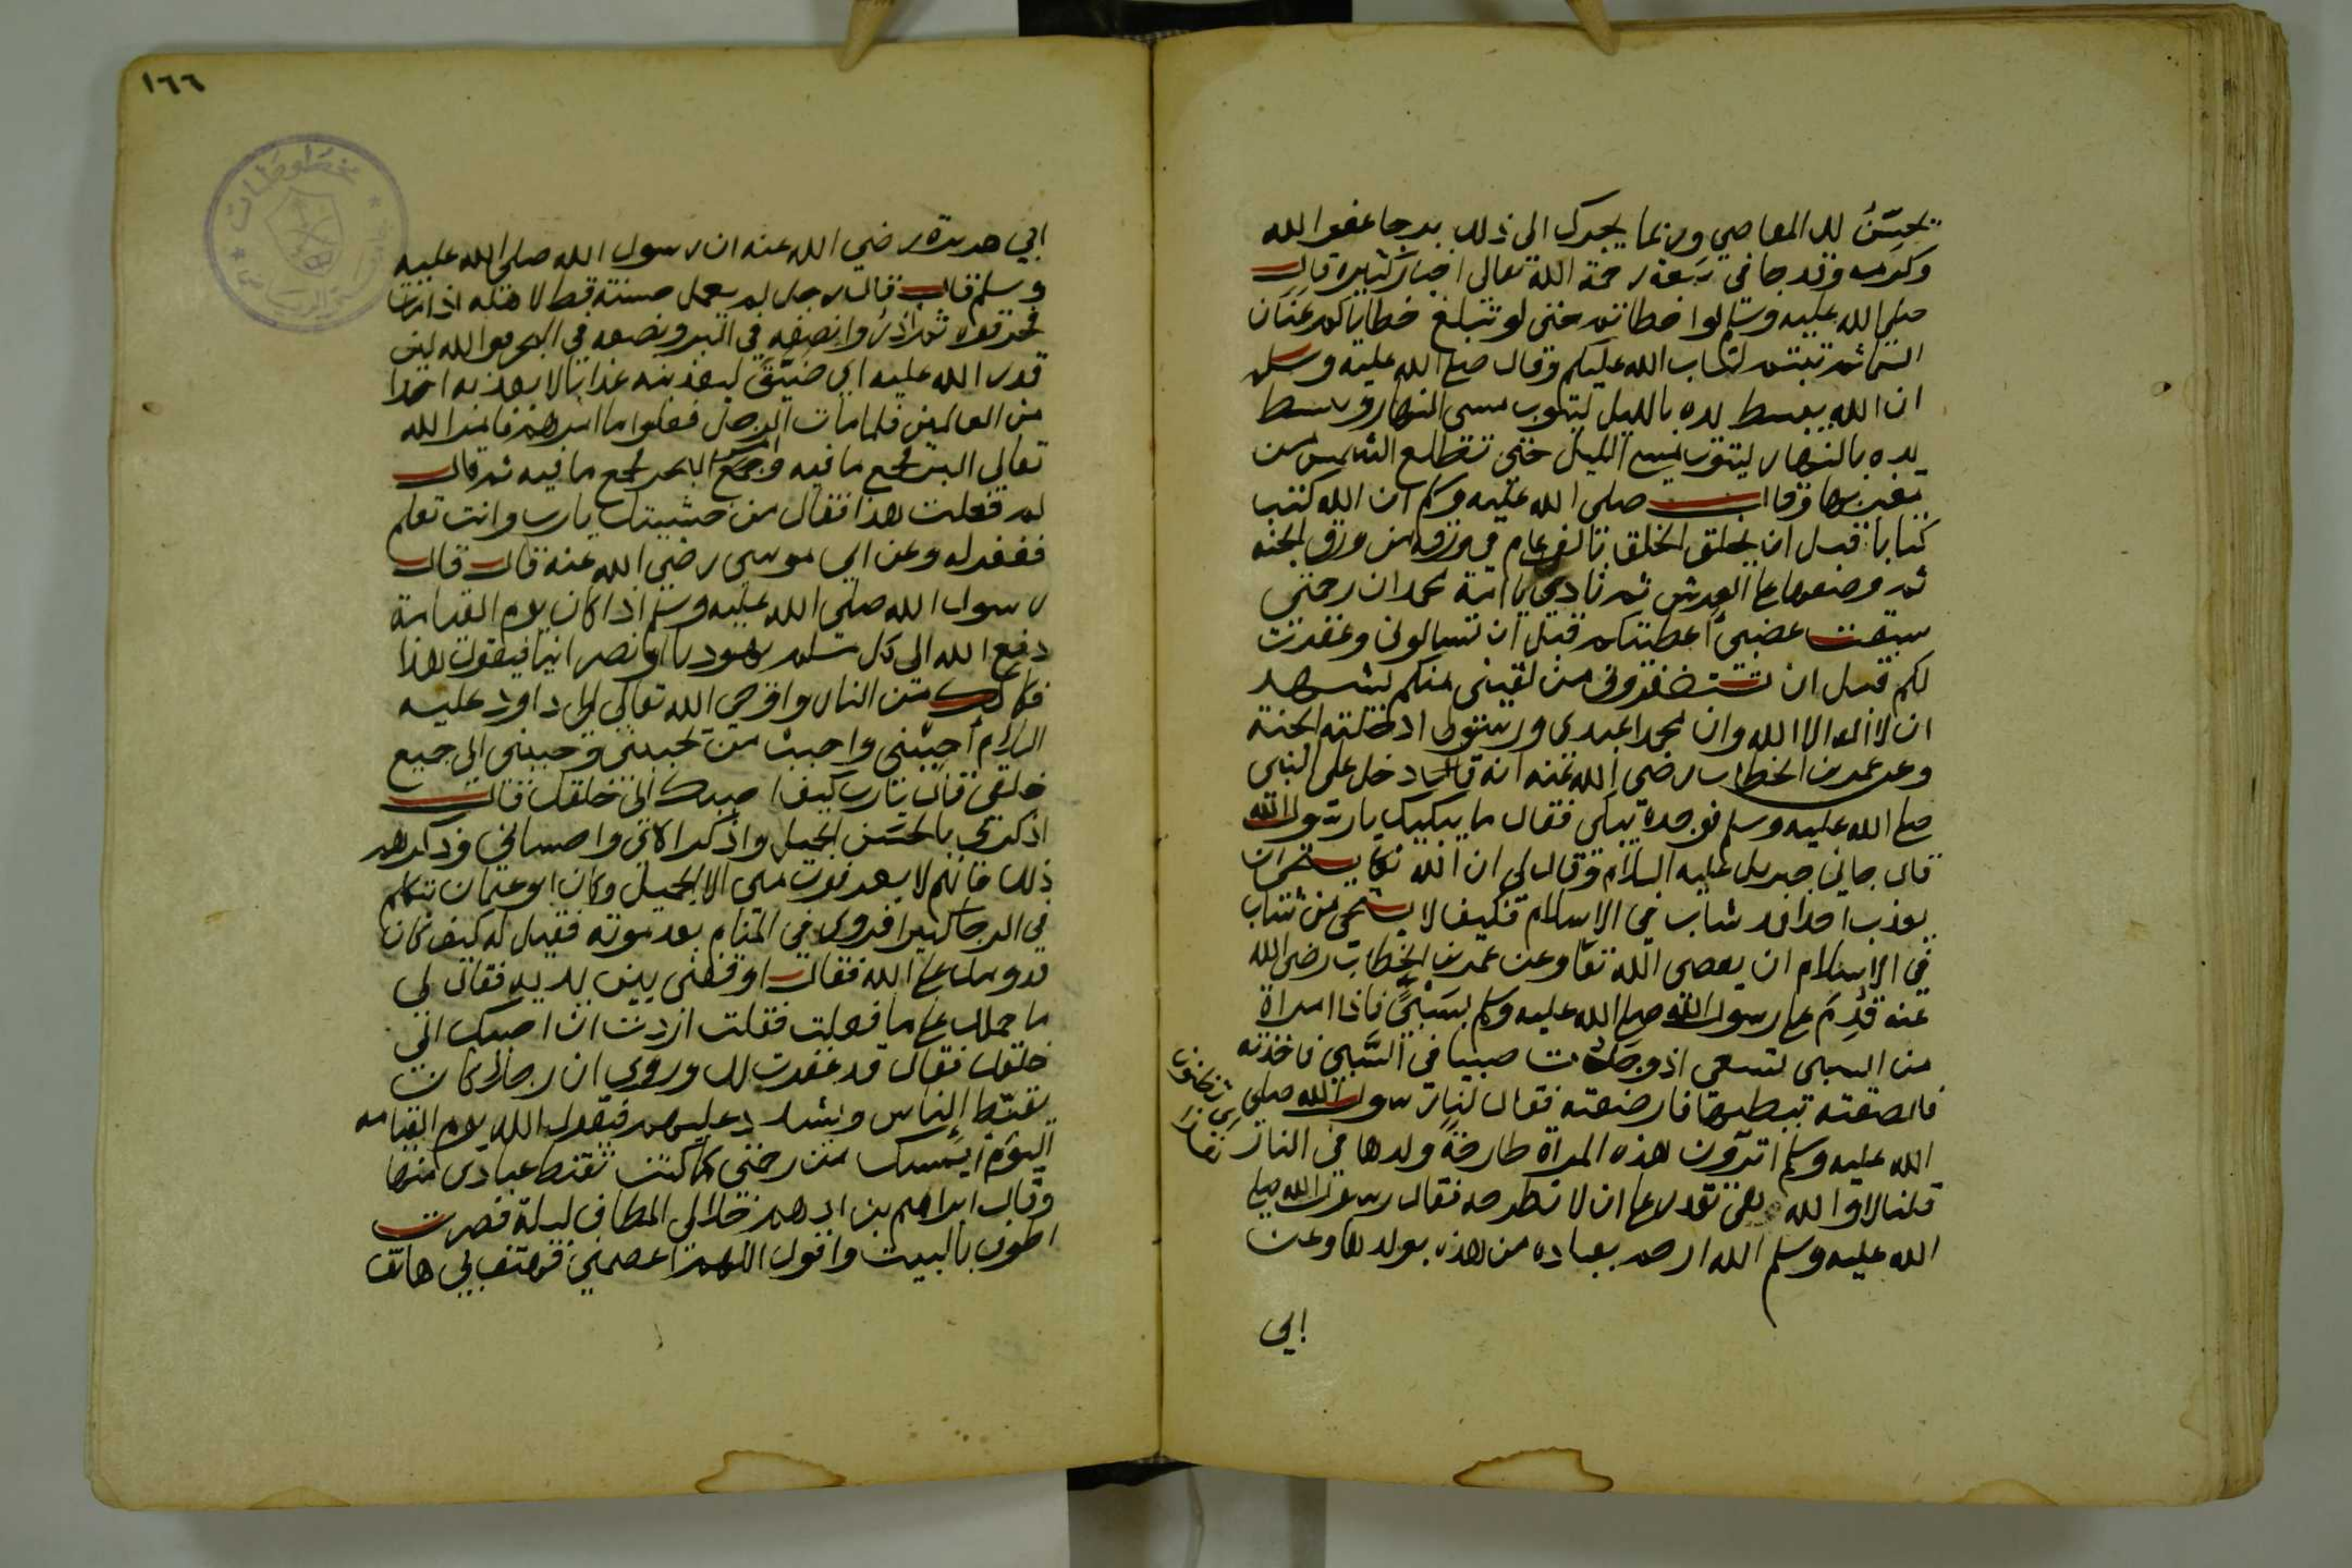 يحسن لك المعاصي وربما يجرك الى ذلك برجا عفو الله
وكرمه وقد جا في سعة رحمة الله تعالى اخبار كثيرة قال
صلى الله عليه وسلم لوا خطاتم حتى لو تبلغ خطاياكم عنان
السما ثم تبتم لتاب الله عليكم وقال صلى الله عليه وسلم
ان الله يبسط يده بالليل ليتوب مسى النهار ويبسط
يده بالنهار ليتوب مسي الليل حتى تطلع الشمس من
مغربها وقال صلى الله عليه وسلم ان الله كتب
كتابا قبل ان يخلق الخلق بالفي عام في ورقة من ورق الجنه
ثم وضعها على العرش ثم نادى يا امة محمد ان رحمتي
سبقت غضبي اعطيتكم قبل ان تسالونى وغفرت
لكم قبل ان تستغفروني من لقيني منكم يشهد
ان لا اله الا الله وان محمدا عبدى ورسولى ادخلته الجنة
وعن عمر بن الخطاب رضي الله عنه انه قال دخل على النبى
صلى الله عليه وسلم فوجده يبكي فقال ما يبكيك يا رسول الله
قال جاني جبريل عليه السلام وقال لي ان الله تعا يستحى ان
يعذب احدا قد شاب في الاسلام فكيف لا يستحى من شاب
في الاسلام ان يعصى الله تعا وعن عمر بن الخطاب رضى الله
عنه قدم على رسول الله صلى الله عليه وسلم بسبي فاذا امراة
من السبى تسعى اذ وجدت صبيا في السبي فاخذته
فالصقته ببطنها فارضعته فقال لنا رسول الله صلى
الله عليه وسلم اترون هذه المراة طارحة ولدها في النار
قلنا لا والله وهي تقدر على ان لا تطرحه فقال رسول الله صلى
الله عليه وسلم الله ارحم بعباده من هذه بولدها وعن
ابي
١٦٦
مخطوطات
ابي هريرة رضي الله عنه ان رسول الله صلى الله عليه
وسلم قال قال رجل لم يعمل حسنة قط لاهله اذا مت
فحرقوه ثم اذروا نصفه في البر ونصفه في البحر فوالله لين
قدر الله عليه اي ضيق ليعذبنه عذابا لا يعذبه احدا
من العالمين فلما مات الرجل فعلوا ما امرهم فامر الله
تعالى البر فجمع ما فيه وامر البحر فجمع ما فيه ثم قال
لم فعلت هذا فقال من خشيتك يا رب وانت تعلم
فغفر له وعن ابي موسى رضي الله عنه قال قال
رسول الله صلى الله عليه وسلم اذا كان يوم القيامة
دفع الله الى كل مسلم يهوديا او نصرانيا فيقول هذا
فكاكك من النار واوحى الله تعالى الى داود عليه
السلام أحبني واحبب من يحبني وحببني الى جميع
خلقي قال يارب كيف احببك الى خلقك قال
اذكرني بالحسن الجميل واذكر الاي واحساني وذكرهم
ذلك فانهم لا يعرفون مني الا الجميل وكان ابو عثمان تتكلم
في الرجا كثيرا فروى في المنام بعد موته فقيل له كيف كان
قدومك على الله فقال اوقفني بين يديه فقال لي
ما حملك على ما فعلت فقلت اردت ان احببك الى
خلقك فقال قد غفرت لك وروي ان رجلا كان
يقنط الناس ويشدد عليهم فيقول الله يوم القيامه
اليوم ايسك من رحمتي كما كنت تقنط عبادى منها
وقال ابراهيم بن ادهم خلا لى المطاف ليلة فصرت
اطوف بالبيت واقول اللهم اعصمني فهتف بي هاتف